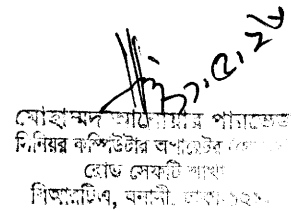 ২১.৫.২৬
মোহাম্মদ আনোয়ার পারভেজ
সিনিয়র কম্পিউটার অপারেটর
রোড সেফটি শাখা
বিআরটিএ, বনানী, ঢাকা-১২১